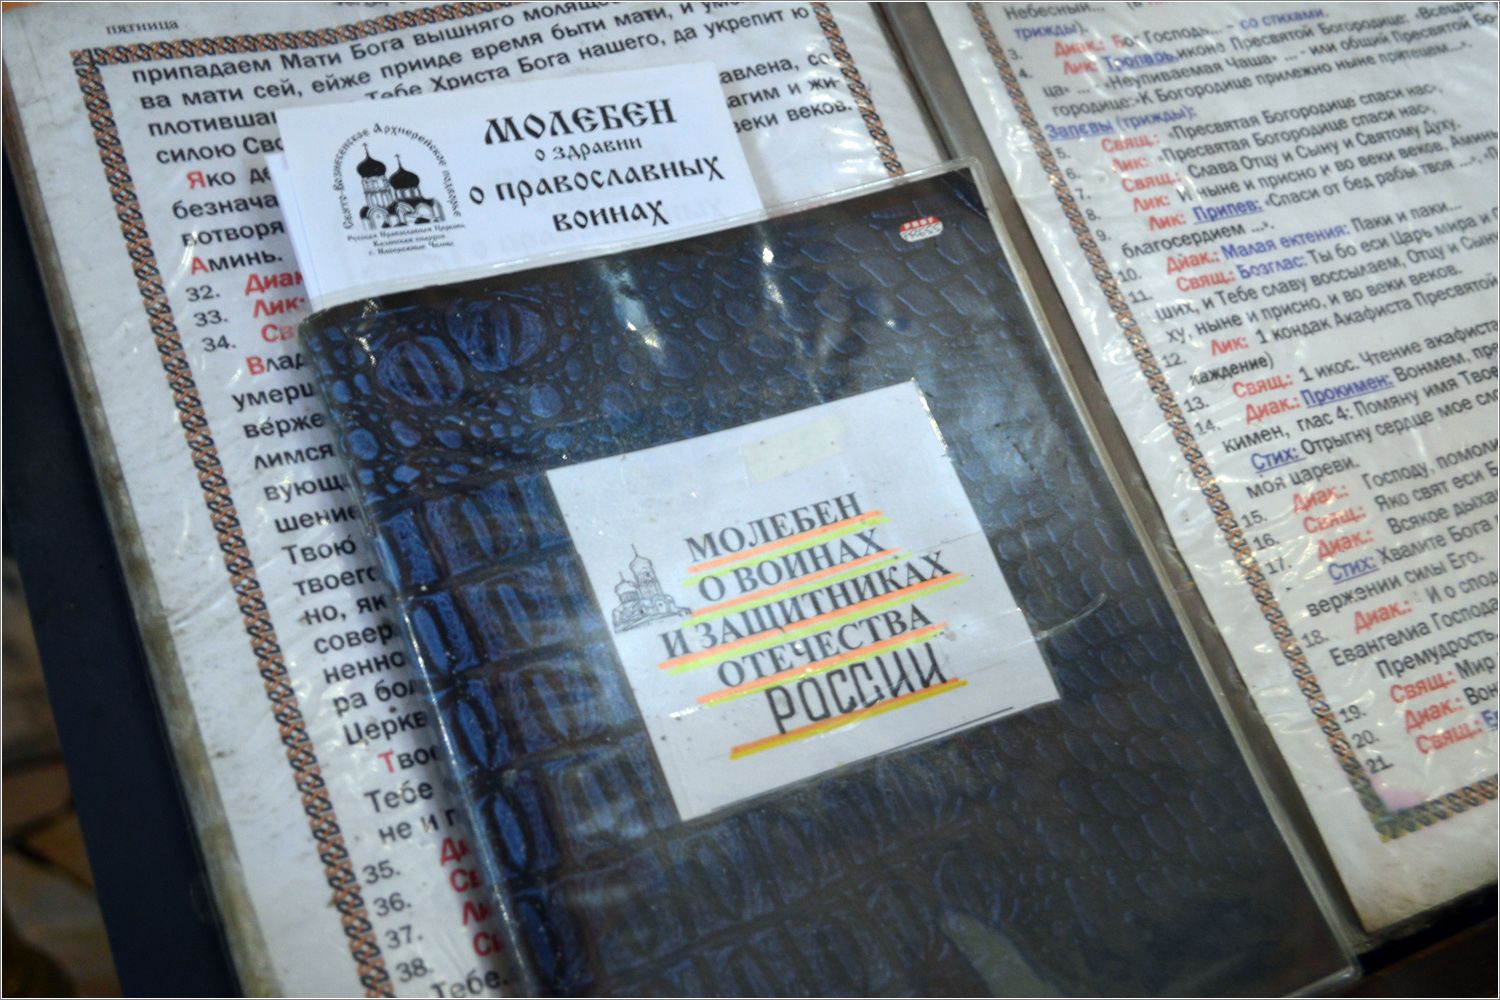 пятница
припадаем Мати Бога вышняго молящ
ва мати сей, ейже прииде время быти мати, и
плотивша Тебе Христа Бога нашего, да укрепит ю
силою авлена, со
агим и жи-
веки веков.
Яко
безнача
вотворя
Аминь.
32. Диак
33. Лик:
34. Св
Влад
умерш
вержe
лимся
вующ
шение
Твою
твоего
но, як
совер
ненно
ра бол
Церкв
Твое
Тебе
не и
35.
36.
37.
38.
Тебе.
МОЛЕБЕН
о здравии
о православных
воинах
Свято-Вознесенское Архиерейское подворье
Русская Православная Церковь
Казанская епархия
г. Набережные Челны
PRESS
МОЛЕБЕН
О ВОИНАХ
И ЗАЩИТНИКАХ
ОТЕЧЕСТВА
РОССИИ
Небесный...
трижды). - со стихами.
3. Диак.: Бог Господь...
4. Лик: Тропарь, иконе Пресвятой Богородице: «Всецар
ца» ... «Неупиваемая Чаша» ... - или общий Пресвятой Бо-
городице: «К Богородице прилежно ныне притецем...».
Запевы (трижды):
5. Свящ.: «Пресвятая Богородице спаси нас»,
6. Лик: «Пресвятая Богородице спаси нас»,
7. Свящ.: Слава Отцу и Сыну и Святому Духу.
8. Лик: И ныне и присно и во веки веков, Аминь
9. Лик: Припев: «Спаси от бед рабы твоя ...»,
благосердием ...».
10. Диак.: Малая ектения: Паки и паки...
11. Свящ.: Возглас: Ты бо еси Царь мира и
ших, и Тебе славу воссылаем, Отцу и Сыну
ху, ныне и присно, и во веки веков.
12. Лик: 1 кондак Акафиста Пресвятой
каждение)
13. Свящ.: 1 икос. Чтение акафиста
14. Диак.: Прокимен: Вонмем, пре
кимен, глас 4: Помяну имя Твое
Стих: Отрыгну сердце мое сло
моя цареви.
15. Диак.: Господу, помоли
16. Свящ.: Яко свят еси Б
17. Диак.: Всякое дыха
Стих: Хвалите Бога
вержении силы Его.
18. Диак.: И о спод
Евангелиа Господа
Премудрость.
19. Свящ.: Мир
20. Диак.: Вон
21. Свящ.: